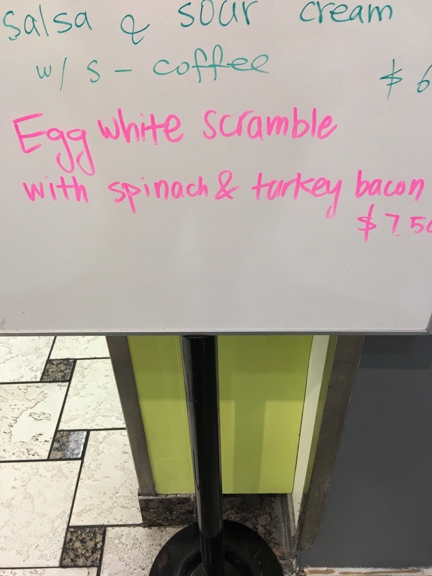 salsa & sour cream
w/ s - coffee $6
Egg white scramble
with spinach & turkey bacon
$7.50